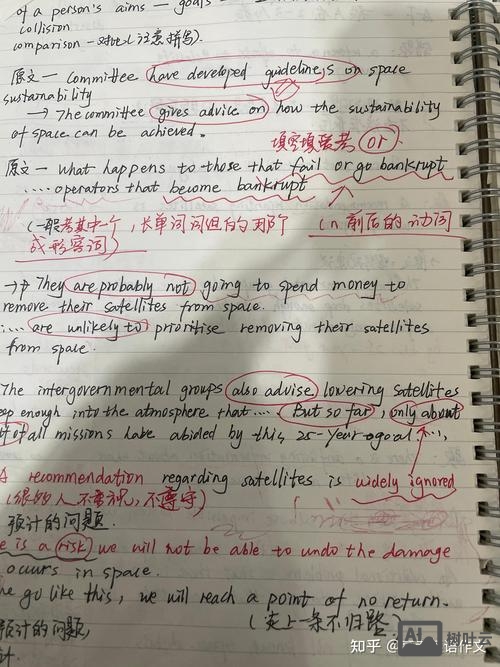 of a person's aims — goals
collision
comparison — 对比(注意拼写).
原文 — Committee have developed guidelines on space
sustainability
→ The committee gives advice on how the sustainability
of space can be achieved.
填空填 or
原文 — what happens to those that fail or go bankrupt
.... operators that become bankrupt
(一般考其中一个, 长单词
or 前后的动词
或形容词)
→ They are probably not going to spend money to
remove their satellites from space.
.... are unlikely to prioritise removing their satellites
from space.
The intergovernmental groups also advise lowering satellites
deep enough into the atmosphere that .... But so far, only about
of all missions have abided by this, 25-year goal....
A recommendation regarding satellites is widely ignored
(很多人不重视, 不遵守)
预计的问题.
e is a risk we will not be able to undo the damage
occurs in space.
we go like this, we will reach a point of no return.
(走上一条不归路)
预计的问题,
计.
知乎
语作文
AI
树叶云